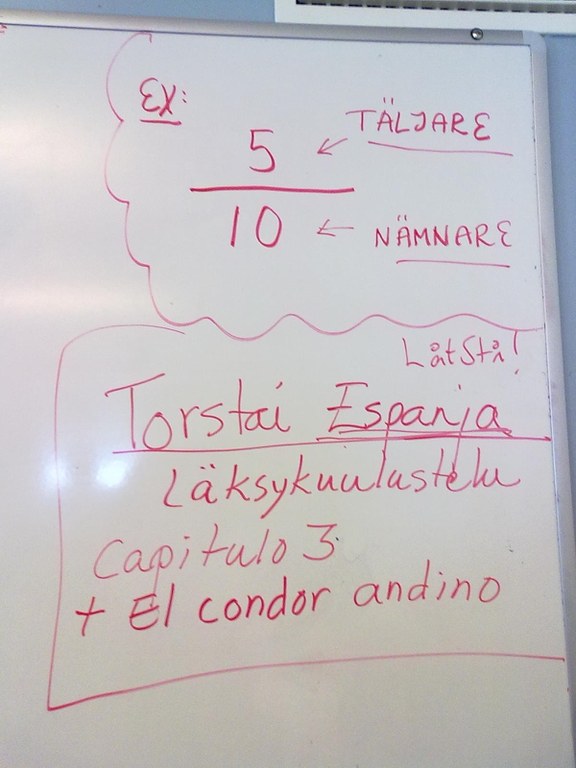 EX:
5 ← TÄLJARE
10 ← NÄMNARE
Låt Stå!
Torstai Espanja
Läksykuulustelu
Capitulo 3
+ El condor andino